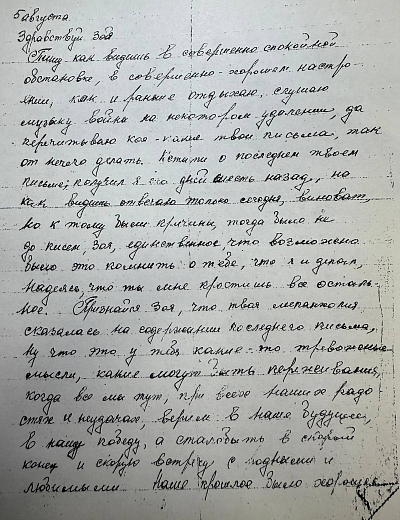 5 августа
Здравствуй Зоя
Пишу как видишь в совершенно спокойной
обстановке, в совершенно-хорошем настро-
ении, как и раньше отдыхаю, слушаю
музыку войны на некотором удалении, да
перечитываю кое-какие твои письма, так
от нечего делать. Кстати о последнем твоем
письме, получил я его дней шесть назад, но
как видишь отвечаю только сегодня, виноват,
но к тому были причины, тогда было не
до писем Зоя, единственное, что возможно
было это помнить о тебе, что я и делал,
надеясь, что ты мне простишь все осталь-
ное. Признайся Зоя, что твоя меланхолия
сказалась на содержании последнего письма,
ну что это у тебя какие-то тревожные
мысли, какие могут быть переживания,
когда все мы тут, при всех наших радо
стях и неудачах, верим в наше будущее,
в нашу победу, а сталобыть в скорый
конец и скорую встречу с родными и
любимыми Наше прошлое было хорошее